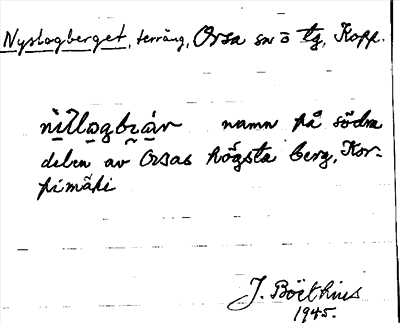 Nyslogberget, terräng, Orsa sn o tg, Kopp.
namn på södra
delen av Orsas högsta berg, Kor-
pimäki
J. Boëthius
1945.